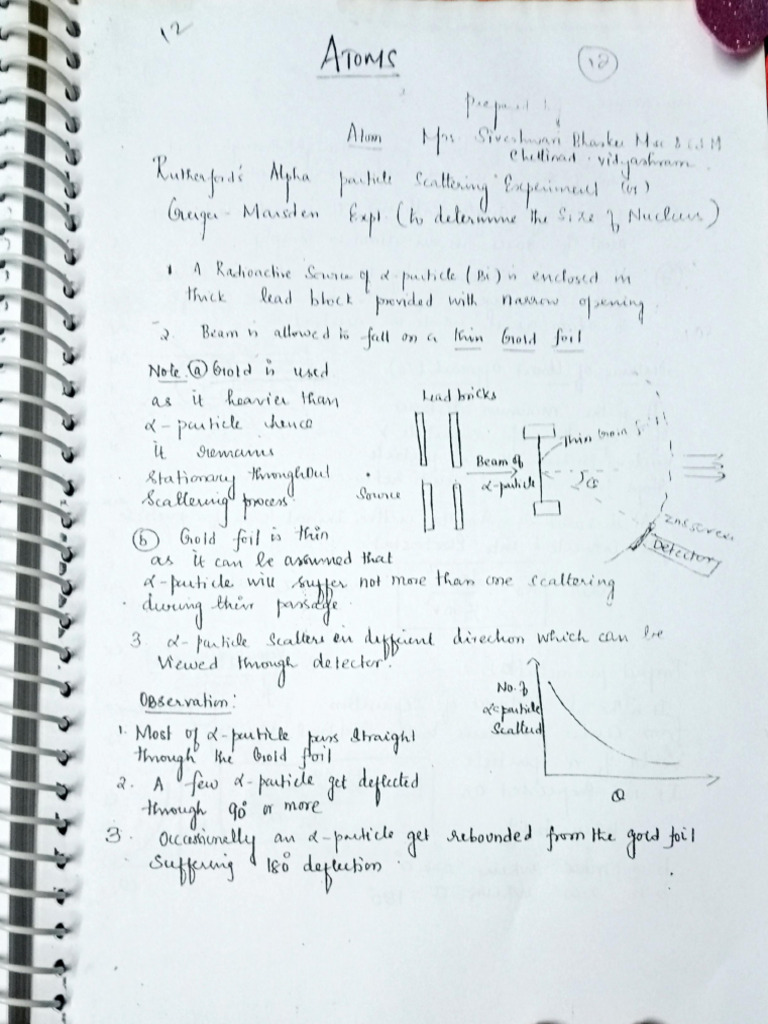 12
ATOMS
12
Prepared by
Atom Mrs Siveshwari Bhaskar Msc B.Ed M
Chettinad - vidyashram
Rutherford's Alpha particle Scattering Experiment (or)
Geiger - Marsden Expt (to determine the Size of Nucleus)
1. A Radioactive Source of α-particle (Bi) is enclosed in
thick lead block provided with narrow opening.
2. Beam is allowed to fall on a thin Gold foil
Note (a) Gold is used
as it heavier than
α-particle hence
it remains
Stationary throughout
Scattering process.
Lead bricks
Beam of
α-particle
Source
thin
θ
ZnS screen
Detector
(b) Gold foil is thin
as it can be assumed that
α-particle will suffer not more than one scattering
during their passage.
3 α-particle scatters in different direction which can be
viewed through detector.
OBSERVATION:
1. Most of α-particle pass straight
through the Gold foil
2. A few α-particle get deflected
through 90° or more
3. Occassionally an α-particle get rebounded from the gold foil
Suffering 180° deflection.
No. of
α-particle
Scattered
θ